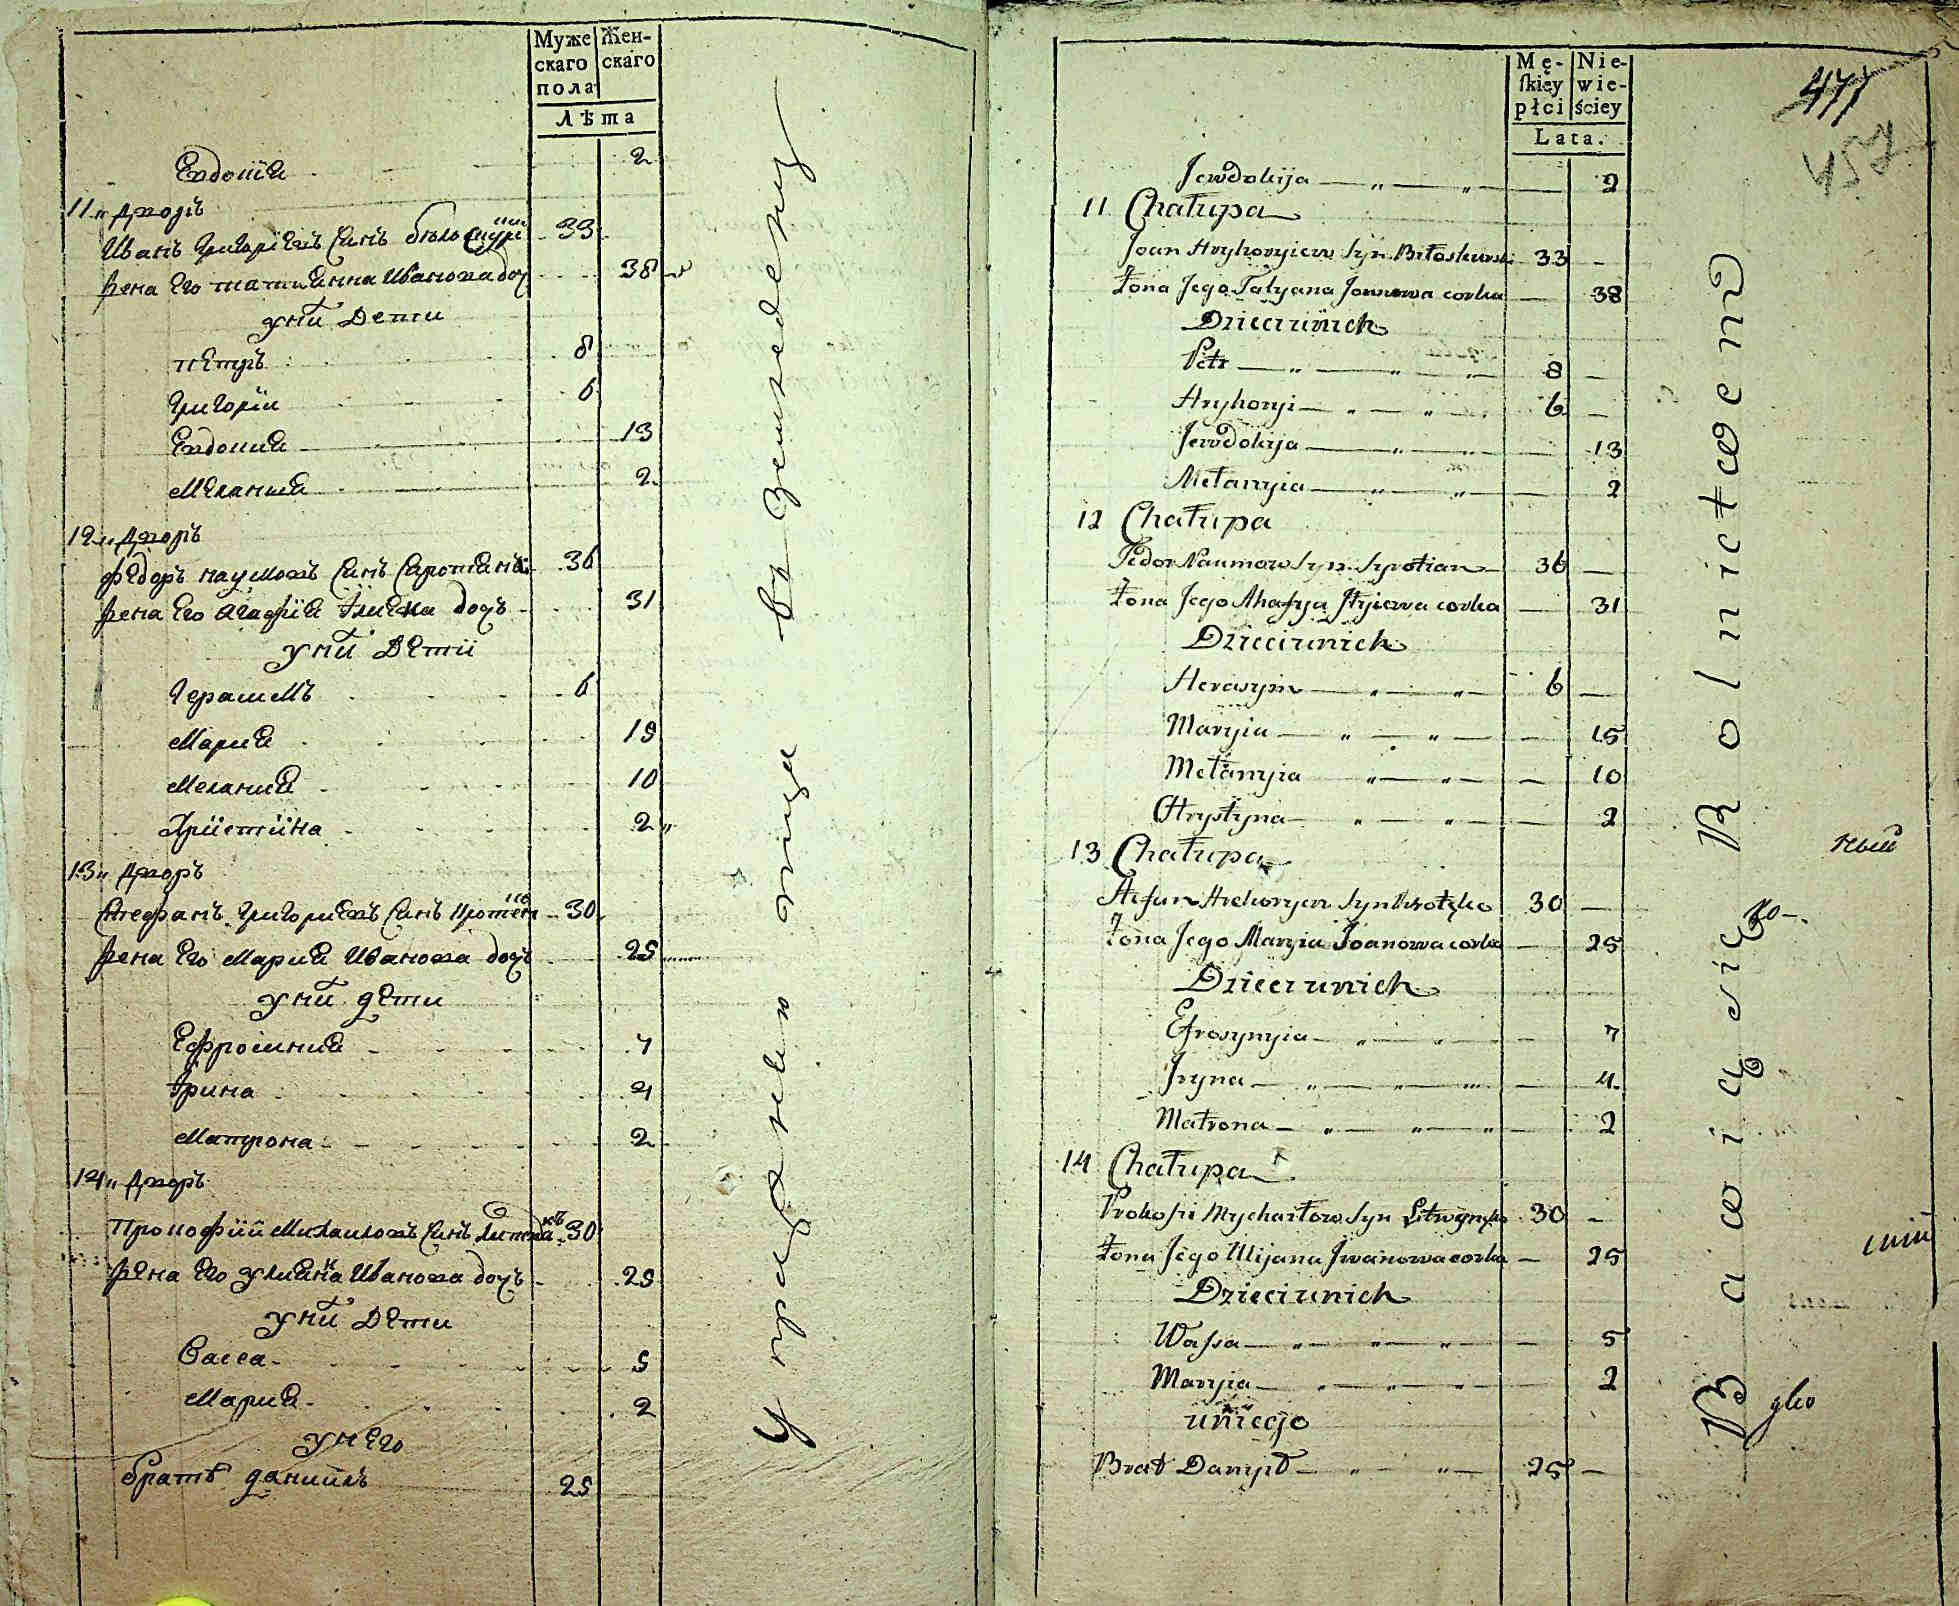 Муже Жен-
скаго скаго
пола
Лѣта
Евдокіѧ 2
11 Дворъ
Иванъ Григоріевъ Синъ Бѣлоскурскій 33
Жена Его Татиянна Иванова доч 38
У нихъ Дети
Петръ 8
Григоріи 6
Евдокиѧ 13
Меланиѧ 2
12 Дворъ
Федоръ Наумовъ Синъ Сиротянъ 36
Жена Его Агафіѧ Iлиева дочъ 31
У нихъ Дети
Герасимъ 6
Мариѧ 15
Меланиѧ 10
Христина 2
13 Дворъ
Стефанъ Григориевъ Синъ 30
Жена Его Мариѧ Иванова дочъ 25
У нихъ дети
Ефросиниѧ 7
Iрина 4
Матрона 2
14 Дворъ
Прокофій Михаиловъ Синъ 30
Жена Его Улияна Иванова дочъ 25
У нихъ Дети
Васса 5
Мариѧ 2
У него
братъ Даниилъ 25
Упражняются въ Земледелиу
Mę- Nie-
skiey wie-
płci ściey
Lata.
471
457
Jewdokija 2
11 Chałupa
Joan Hryhoryiew Syn Biłoskurski 33
Żona Jego Tatyana Joanowa corka 38
Dzieci u nich
Petr 8
Hryhoryi 6
Jewdokija 13
Mełanyia 2
12 Chałupa
Fedor Naumow Syn Syrotian 36
Żona Jego Ahafya Iłyiewa corka 31
Dzieci u nich
Herasym 6
Maryia 15
Mełanyia 10
Chrystyna 2
13 Chałupa
Stefan Hrehoryew Syn 30
Żona Jego Maryia Joanowa corka 25
Dzieci u nich
Efrosynyia 7
Iryna 4
Matrona 2
14 Chałupa
Prokofii Mychaiłow Syn Litwynko 30
Żona Jego Ulijana Iwanowa corka 25
Dzieci u nich
Wassa 5
Maryia 2
u niego
Brat Danyło 25
Bawią się Rolnictwem